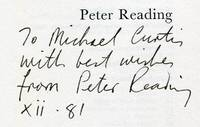 Peter Reading
To Michael Curtis
with best wishes
from Peter Reading
xii · 81